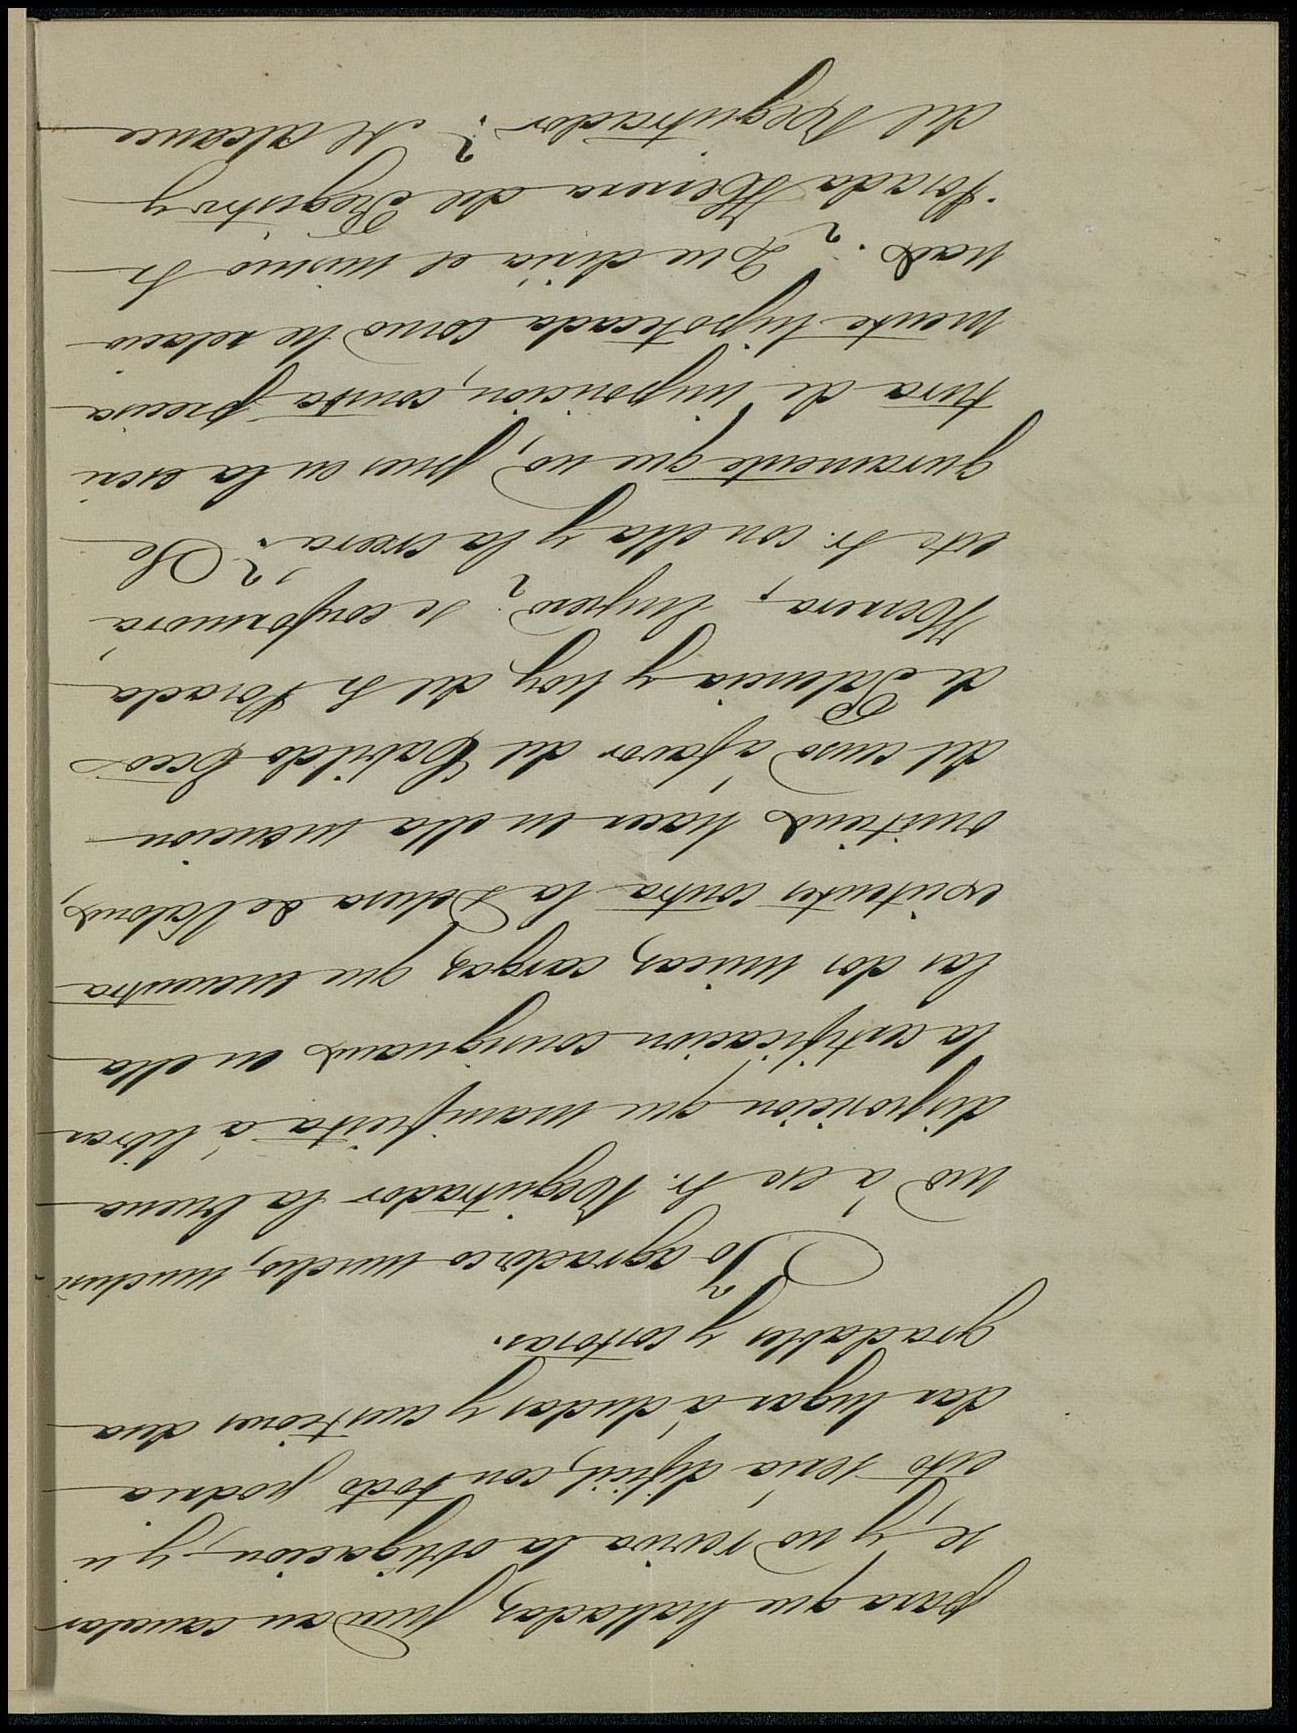 para que halladas, puedan cancelar
se, y no reviva la obligacion, y si
esto sería dificil, con todo podria
dar lugar á dudas y cuestiones desa
gradables y costosas.
Yo agradezco mucho, muchisi
mo á ese Sr. Registrador la buena
disposicion que manifiesta á librar
la certificacion consignando en ella
las dos unicas cargas, que encuentra
existentes contra la Dehesa de Valoria,
omitiendo hacer en ella mencion
del censo á favor del Cabildo Ecco
de Palencia y hoy del Sr Posada
Herrera; empero ¿se conformará
este Sr. con ella y la creera? Se
guramente que no, pues en la escri
tura de imposicion, consta precisa
mente hipotecada como he relacio
nado. ¿Que diría el mismo Sr
Posada Herrera del Registro y
del Registrador? Al alcance